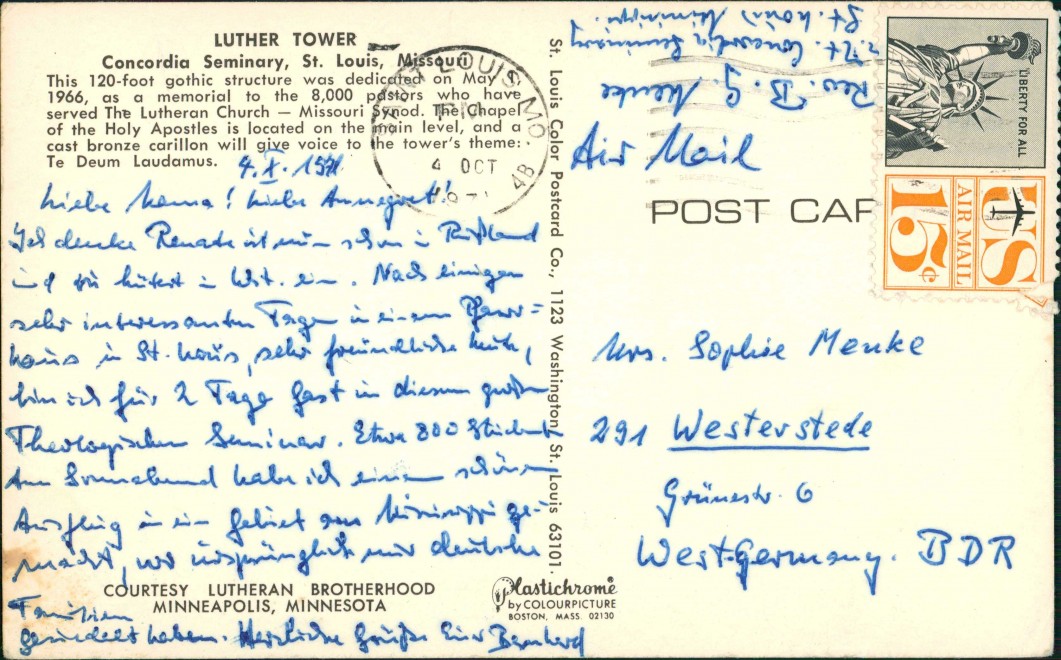 LUTHER TOWER
Concordia Seminary, St. Louis, Missouri
This 120-foot gothic structure was dedicated on May 1,
1966, as a memorial to the 8,000 pastors who have
served The Lutheran Church — Missouri Synod. The Chapel
of the Holy Apostles is located on the main level, and a
cast bronze carillon will give voice to the tower's theme:
Te Deum Laudamus.
4. X. 1971
Liebe Mama! Liebe Annegret!
Ich denke Renate ist nun schon in
und hütet in ein. Nach einigen
sehr interessanten Tagen in einem Pfarr=
haus in St. Louis, sehr freundliche Leute,
bin ich für 2 Tage Gast in diesem großen
Theologischen Seminar. Etwa 800 Studenten
Am Sonnabend habe ich einen schönen
Ausflug in ein Gebiet am Mississippi ge-
macht, wo ursprünglich nur deutsche
Familien
gesiedelt haben. Herzliche Grüße Euer Bernhard
COURTESY LUTHERAN BROTHERHOOD
MINNEAPOLIS, MINNESOTA
St. Louis Color Postcard Co., 1123 Washington St. Louis 63101.
Plastichrome®
by COLOURPICTURE
BOSTON, MASS. 02130
SAINT LOUIS, MO
PM
4 OCT
1971
4B
Rev. B. G. Menke
Concordia Seminary
St. Louis Mississippi.
Air Mail
POST CAR
LIBERTY FOR ALL
US
AIR MAIL
15¢
Mrs. Sophie Menke
291 Westerstede
Grünestr. 6
West-Germany. BDR